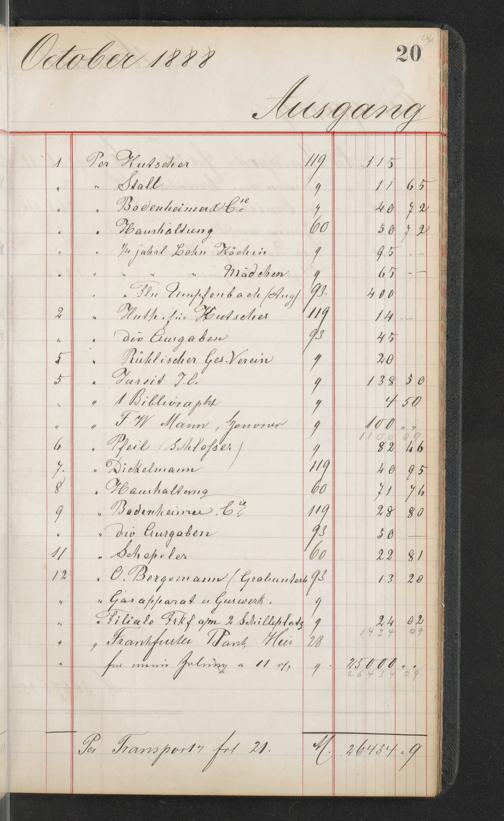 October 1888 20
Ausgang
1 Per Kutscher 119 115
" " Stall " 11 65
" " Badenheimer & Cie " 40 72
" " Haushaltung 60 50 72
" " ¼ jährl Lohn Köchin " 95 --
" " " " Mädchen " 65 --
" Umpfenbach (Aug) 93 400
2 " Huth für Kutscher 119 14 --
" " div Ausgaben 93 45
5 " Rühlischer Ges. Verein " 20
5 " " 138 50
" " 1 Bibliograph " 4 50
" " F W Mann, " 100 " "
6 " Pfeil (Schlosser) " 82 46
7 " Dickelmann 119 40 95
8 " Haushaltung 60 71 76
9 " Badenheimer & Cie 119 28 80
" " div Ausgaben 93 50 --
11 " Schepeler 60 22 81
12 " O. Bergemann ( 93 13 20
" " Gasapparat u "
" " Filiale Frkf a/m 2 Schillplatz " 24 02
1434 09
" " Frankfurter Bank 28
" 11 " 25000 " "
26434 09
Per Transport fol 21. M. 26434 . 9